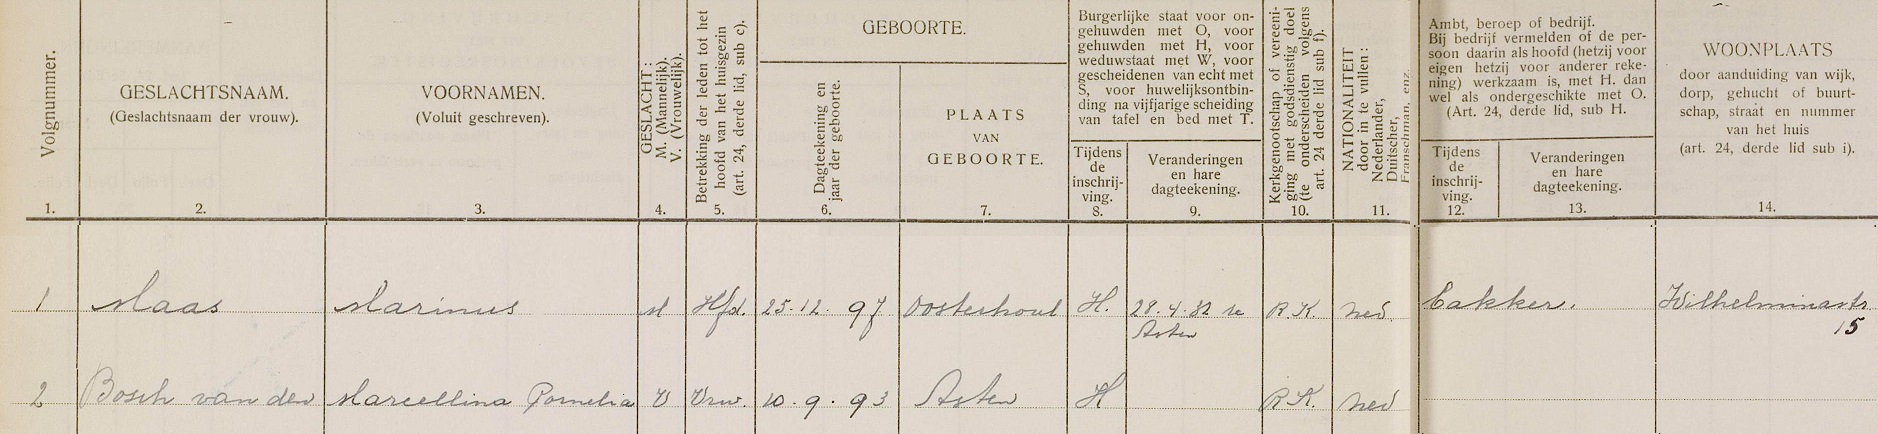 Volgnummer.
1.
GESLACHTSNAAM.
(Geslachtsnaam der vrouw).
2.
VOORNAMEN.
(Voluit geschreven).
3.
GESLACHT:
M. (Mannelijk).
V. (Vrouwelijk).
4.
Betrekking der leden tot het
hoofd van het huisgezin
(art. 24, derde lid, sub c).
5.
GEBOORTE.
Dagteekening en
jaar der geboorte.
6.
PLAATS
VAN
GEBOORTE.
7.
Burgerlijke staat voor on-
gehuwden met O, voor
gehuwden met H, voor
weduwstaat met W, voor
gescheidenen van echt met
S, voor huwelijksontbin-
ding na vijfjarige scheiding
van tafel en bed met T.
Tijdens
de
inschrij-
ving.
8.
Veranderingen
en hare
dagteekening.
9.
Kerkgenootschap of vereeni-
ging met godsdienstig doel
(te onderscheiden volgens
art. 24 derde lid sub f).
10.
NATIONALITEIT
door in te vullen:
Nederlander,
Duitscher,
Franschman, enz.
11.
Ambt, beroep of bedrijf.
Bij bedrijf vermelden of de per-
soon daarin als hoofd (hetzij voor
eigen hetzij voor anderer reke-
ning) werkzaam is, met H. dan
wel als ondergeschikte met O.
(Art. 24, derde lid, sub H.
Tijdens
de
inschrij-
ving.
12.
Veranderingen
en hare
dagteekening.
13.
WOONPLAATS
door aanduiding van wijk,
dorp, gehucht of buurt-
schap, straat en nummer
van het huis
(art. 24, derde lid sub i).
14.
1 Maas Marinus M Hfd. 25.12.97 Oosterhout H. 28.4.82 te R.K. Ned. Bakker. Wilhelminastr.
Asten 15
2 Bosch van den Marcellina Cornelia V Vrw. 20.9.93 Asten H R.K. Ned